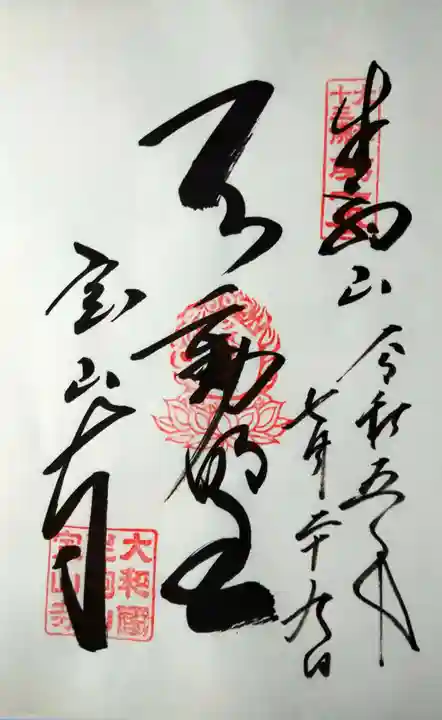 生駒山
令和五年
七月二十九日
不動明王
宝山寺
大和國
生駒山
宝山寺